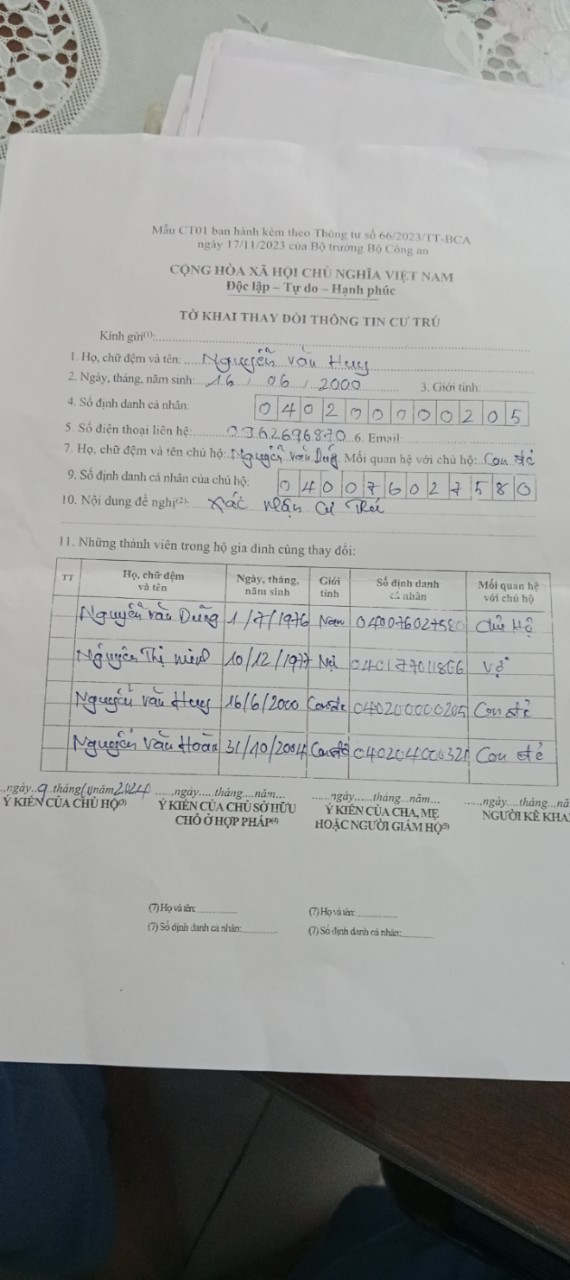 Mẫu CT01 ban hành kèm theo Thông tư số 66/2023/TT-BCA
ngày 17/11/2023 của Bộ trưởng Bộ Công an
CỘNG HÒA XÃ HỘI CHỦ NGHĨA VIỆT NAM
Độc lập – Tự do – Hạnh phúc
TỜ KHAI THAY ĐỔI THÔNG TIN CƯ TRÚ
Kính gửi(1):
1. Họ, chữ đệm và tên: Nguyễn Văn Huy
2. Ngày, tháng, năm sinh: 16 / 06 / 2000 3. Giới tính:
4. Số định danh cá nhân: 040200000205
5. Số điện thoại liên hệ: 0362696870 6. Email:
7. Họ, chữ đệm và tên chủ hộ: Nguyễn Văn Dũng Mối quan hệ với chủ hộ: Con đẻ
9. Số định danh cá nhân của chủ hộ: 040076027580
10. Nội dung đề nghị(2): xác nhận Cư Trú
11. Những thành viên trong hộ gia đình cùng thay đổi:
TT Họ, chữ đệm và tên Ngày, tháng, năm sinh Giới tính Số định danh cá nhân Mối quan hệ với chủ hộ
Nguyễn Văn Dũng 1/7/1976 Nam 040076027580 Chủ Hộ
Nguyễn Thị 10/12/1977 Nữ 040177011866 Vợ
Nguyễn Văn Huy 16/6/2000 Con đẻ 040200000205 Con đẻ
Nguyễn Văn Hoàn 31/10/2004 Con đẻ 040204000321 Con đẻ
..,ngày..9.tháng năm 2024 .....,ngày.....tháng....năm... ......,ngày.....tháng...năm... .....,ngày....tháng...nă
Ý KIẾN CỦA CHỦ HỘ(3) Ý KIẾN CỦA CHỦ SỞ HỮU Ý KIẾN CỦA CHA, MẸ NGƯỜI KÊ KHA
CHỖ Ở HỢP PHÁP(4) HOẶC NGƯỜI GIÁM HỘ(5)
(7) Họ và tên: (7) Họ và tên:
(7) Số định danh cá nhân: (7) Số định danh cá nhân: